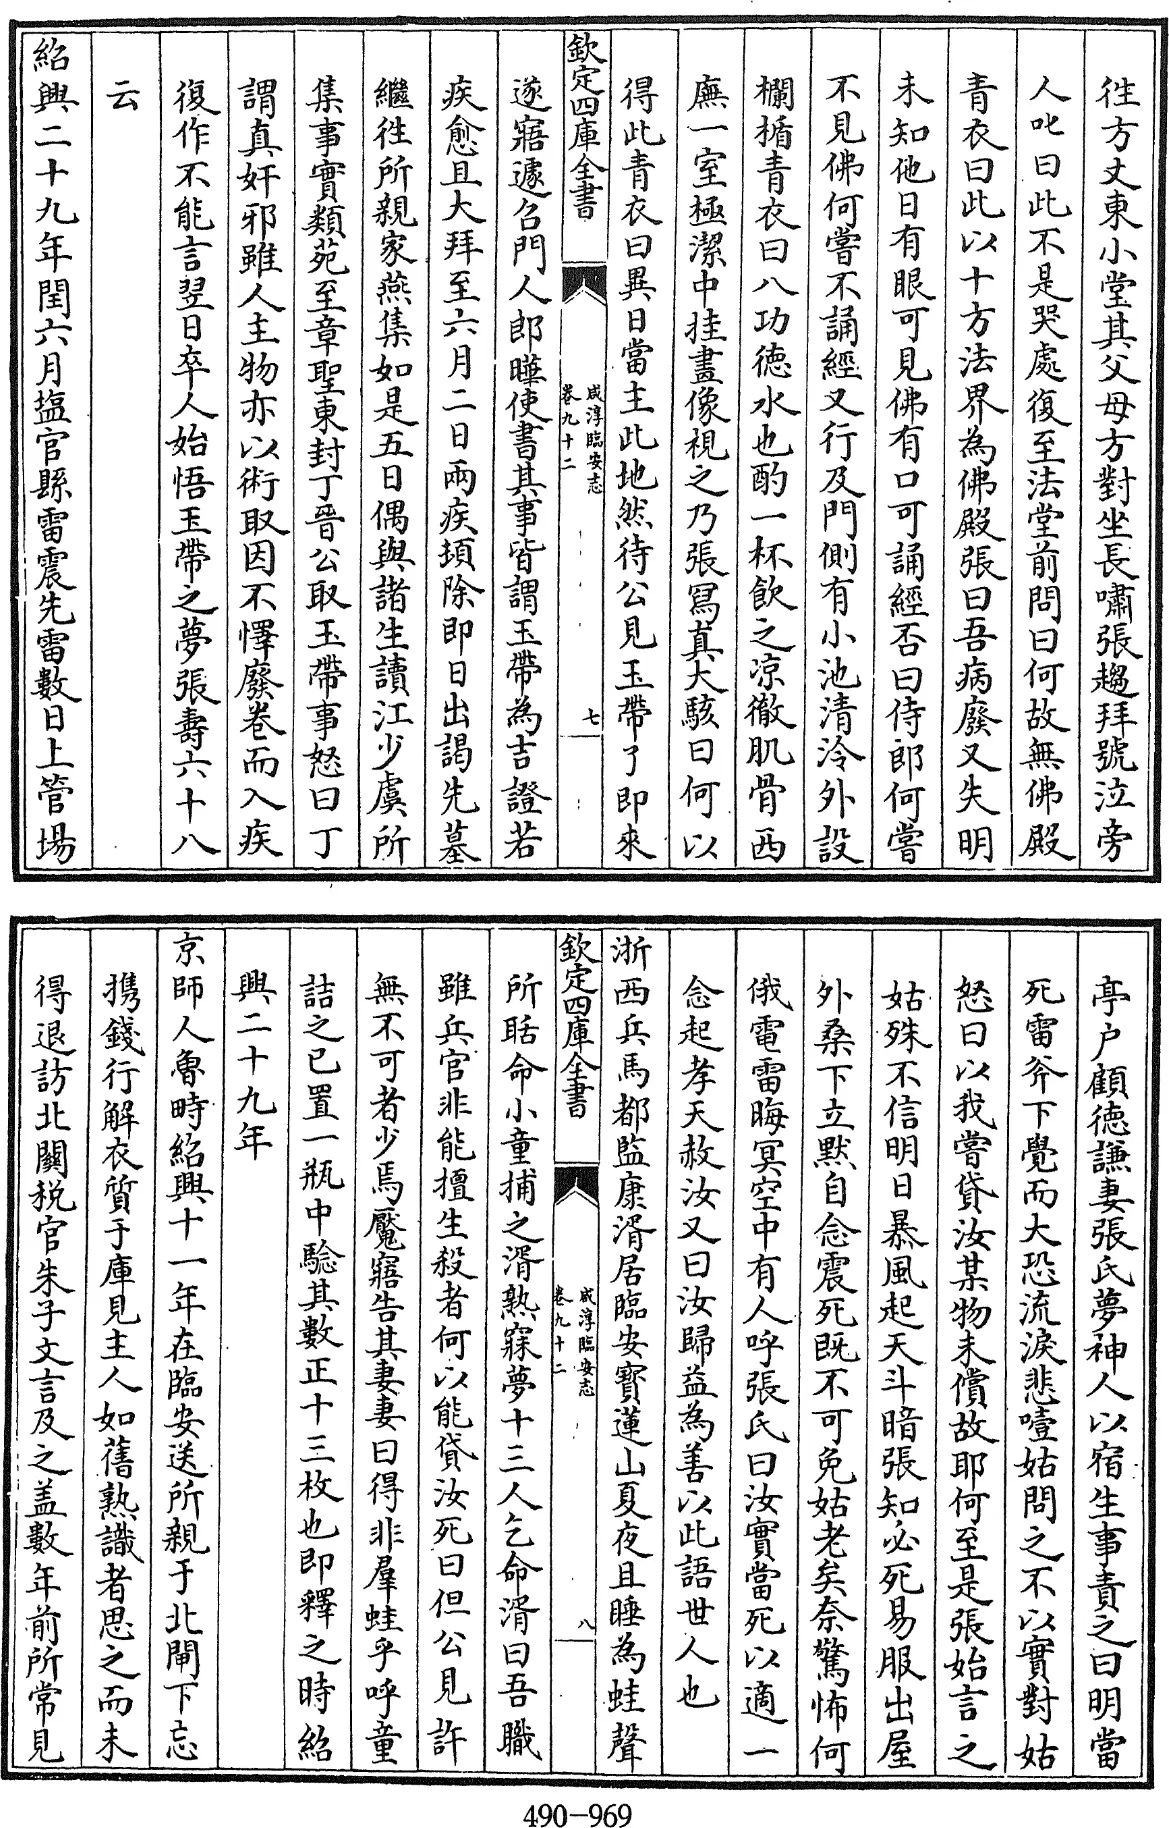 徃方丈東小堂其父母方對坐長嘯張趨拜號泣旁
人叱曰此不是哭處復至法堂前問曰何故無佛殿
青衣曰此以十方法界為佛殿張曰吾病廢又失明
未知他日有眼可見佛有口可誦經否曰侍郎何嘗
不見佛何嘗不誦經又行及門側有小池清泠外設
欄楯青衣曰八功徳水也酌一杯飲之凉徹肌骨西
廡一室極潔中挂畫像視之乃張冩真大駭曰何以
得此青衣曰異日當主此地然待公見玉帶了即來
欽定四庫全書
咸淳臨安志
卷九十二
七
遂寤遽召門人郎曄使書其事皆謂玉帶為吉證若
疾愈且大拜至六月二日兩疾頓除即日出謁先墓
繼徃所親家燕集如是五日偶與諸生讀江少虞所
集事實類苑至章聖東封丁晉公取玉帶事怒曰丁
謂真奸邪雖人主物亦以術取因不懌廢卷而入疾
復作不能言翌日卒人始悟玉帶之夢張壽六十八
云
紹興二十九年閏六月塩官縣雷震先雷數日上管場
亭户顧徳謙妻張氏夢神人以宿生事責之曰明當
死雷斧下覺而大恐流淚悲噎姑問之不以實對姑
怒曰以我嘗貸汝某物未償故耶何至是張始言之
姑殊不信明日暴風起天斗暗張知必死易服出屋
外桑下立黙自念震死既不可免姑老矣奈驚怖何
俄電雷晦冥空中有人呼張氏曰汝實當死以適一
念起孝天赦汝又曰汝歸益為善以此語世人也
浙西兵馬都監康湑居臨安寳蓮山夏夜且睡為蛙聲
欽定四庫全書
咸淳臨安志
卷九十二
八
所聒命小童捕之湑熟寐夢十三人乞命湑曰吾職
雖兵官非能擅生殺者何以能貸汝死曰但公見許
無不可者少焉魘寤告其妻妻曰得非羣蛙乎呼童
詰之已置一瓶中驗其數正十三枚也即釋之時紹
興二十九年
京師人魯畤紹興十一年在臨安送所親于北閘下忘
携錢行解衣質于庫見主人如舊熟識者思之而未
得退訪北闗税官朱子文言及之盖數年前所常見
490-969